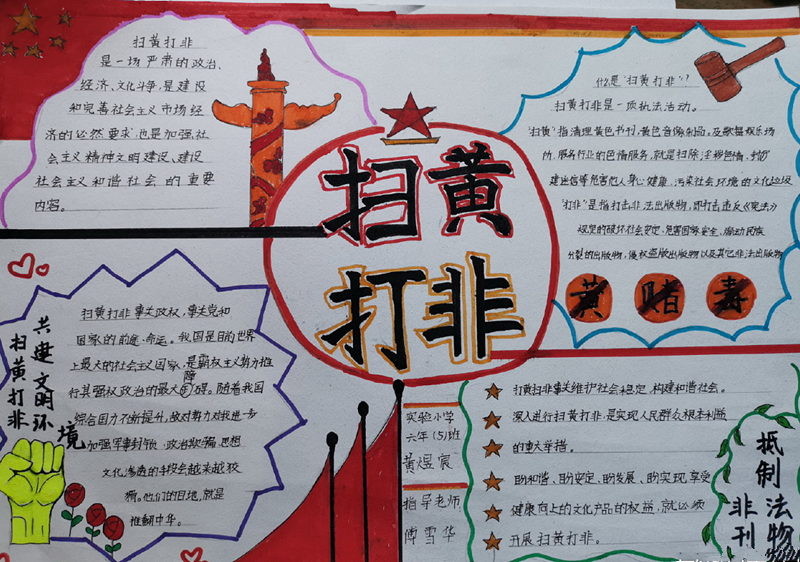 扫黄打非
是一场严肃的政治、
经济、文化斗争,是建设
和完善社会主义市场经
济的必然要求,也是加强社
会主义精神文明建设、建设
社会主义和谐社会的重要
内容。
扫黄
打非
什么是“扫黄打非”?
扫黄打非是一项执法活动。
“扫黄”指清理黄色书刊,黄色音像制品,及歌舞娱乐场
所,服务行业的色情服务,就是扫除淫秽色情,封
建迷信等危害他人身心健康,污染社会环境的文化垃圾
“打非”是指打击非法出版物,即打击违反《宪法》
规定的破坏社会安定、危害国家安全、煽动民族
分裂的出版物,侵权盗版出版物以及其他非法出版物
黄 赌 毒
共建文明环境
扫黄打非
扫黄打非事关政权,事关党和
国家的前途、命运。我国是目前世界
上最大的社会主义国家,是霸权主义势力推
行其强权政治的最大障碍。随着我国
综合国力不断提升,敌对势力对我进一步
加强军事封锁、政治欺骗、思想
文化渗透的手段会越来越狡
猾。他们的目地,就是
推翻中华。
实验小学
六年(5)班
黄煜宸
指导老师
傅雪华
打黄扫非事关维护社会稳定,构建和谐社会。
深入进行扫黄打非,是实现人民群众根本利益
的重大举措。
盼和谐、盼安定、盼发展、盼实现,享受
健康向上的文化产品的权益,就必须
开展扫黄打非。
抵制法物
非刊